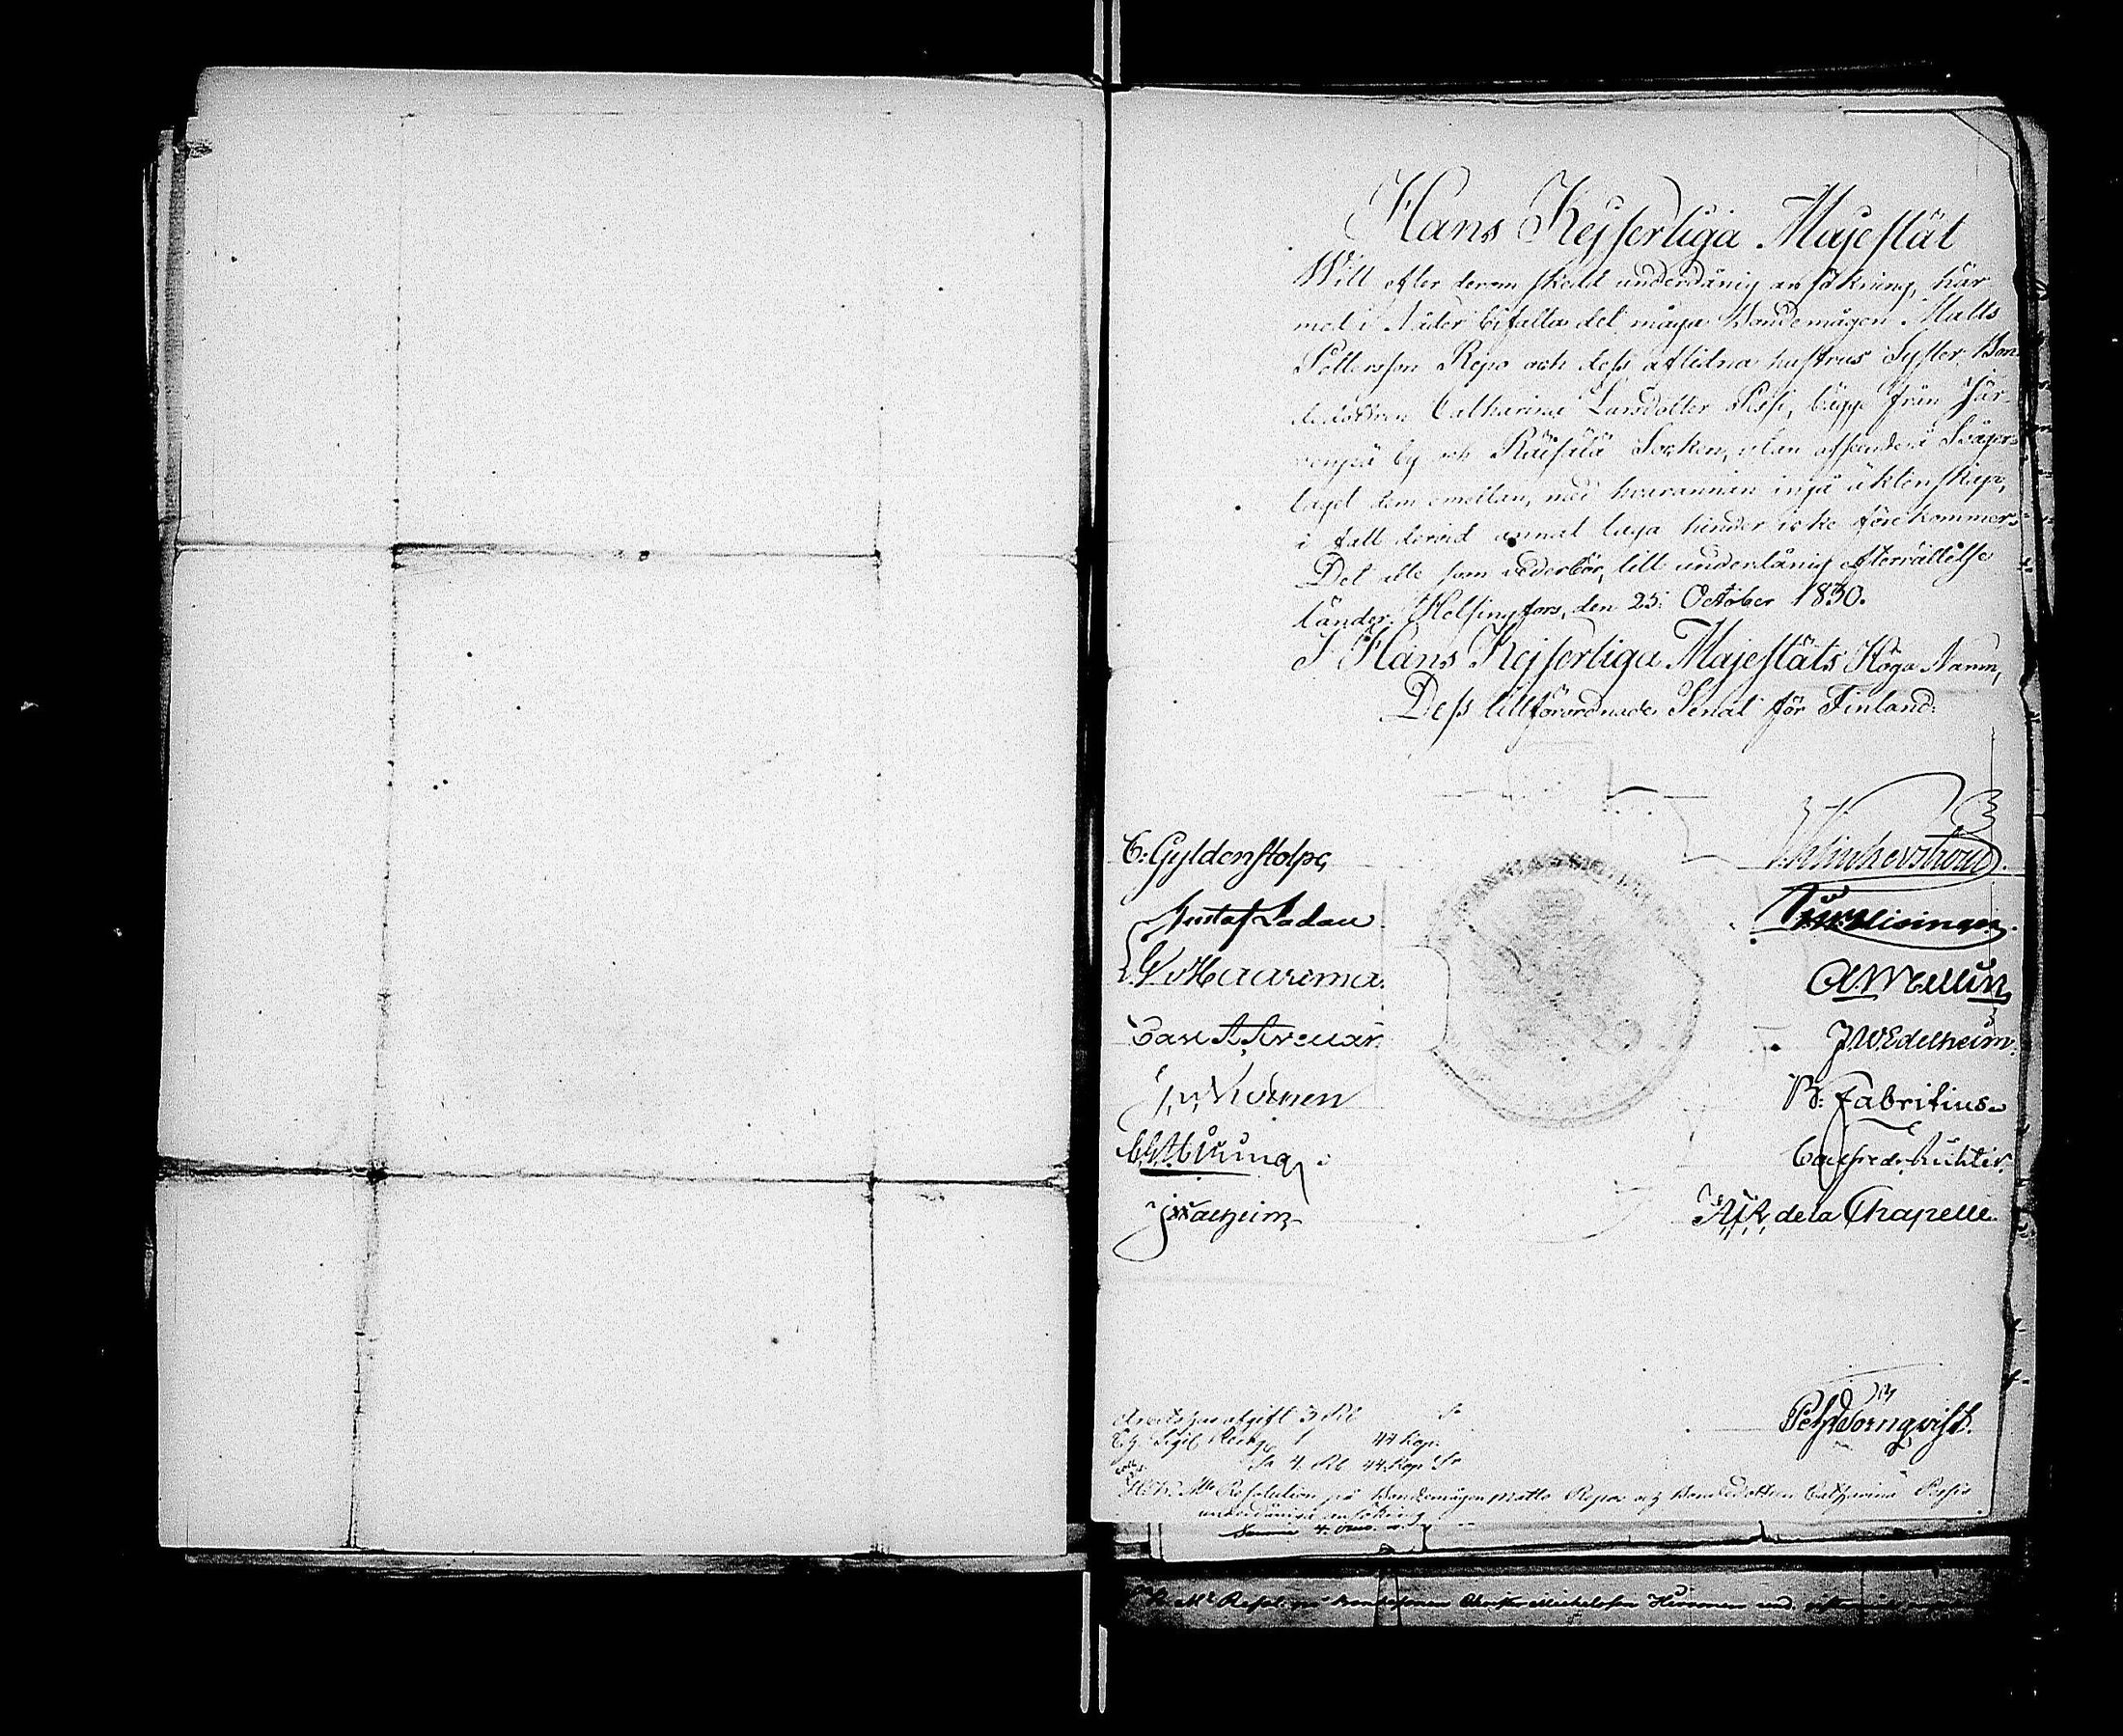 Hans Kejserliga Majestät
Will efter derom skedd underdånig ansökning, här-
med i Nåder bifalla det måga Bondemågen Matts
Pettersson Repo och dess aflidna hustrus Syster, Bon-
dedottren Catharina Larsdotter Pessi, bägge från Jär-
venpä by och Räisälä Socken, utan afseende å Svåger-
laget dem emellan, med hvarannan ingå äktenskap,
i fall dervid annat laga hinder icke förekommer.
Det alle som vederbör, till underdånig efterrättelse
länder. Helsingfors, den 25. October 1830.
I Hans Kejserliga Majestäts Höga Namn,
Dess tillförordnade Senat för Finland:
C: Gyldenstolpe
Klinckowström
Gustaf Ladau
G. v. Haartman
A. Mellin
J. W. Edelheim
B. Fabritius
Carl Fredr. Richter
J. Walheim
A. F. R. de la Chapelle
Pehr Tornqvist.
afgift 3 Rb Sr
Sigil 1 44 Kop.
Sa 4. Rb 44 Kop Sr
Resolution på Bondemågen Matts Repos och Bondedottren Catharina Pessis
underdåniga ansökning
Resol. på bondesonen Michelsson Hinnonen und.